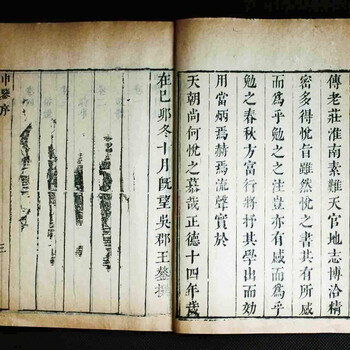 傳老莊淮南素難天官地志博洽精
密多得悅旨雖然悅之書其有所感
而爲乎勉之之注豈亦有感而爲乎
勉之春秋方富行將抒其學出而效
用當炳焉赫焉流聲實於
天朝尚何悅之慕哉正德十四年歲
在己卯冬十月既望吳郡王鏊撰
申鑒序
三